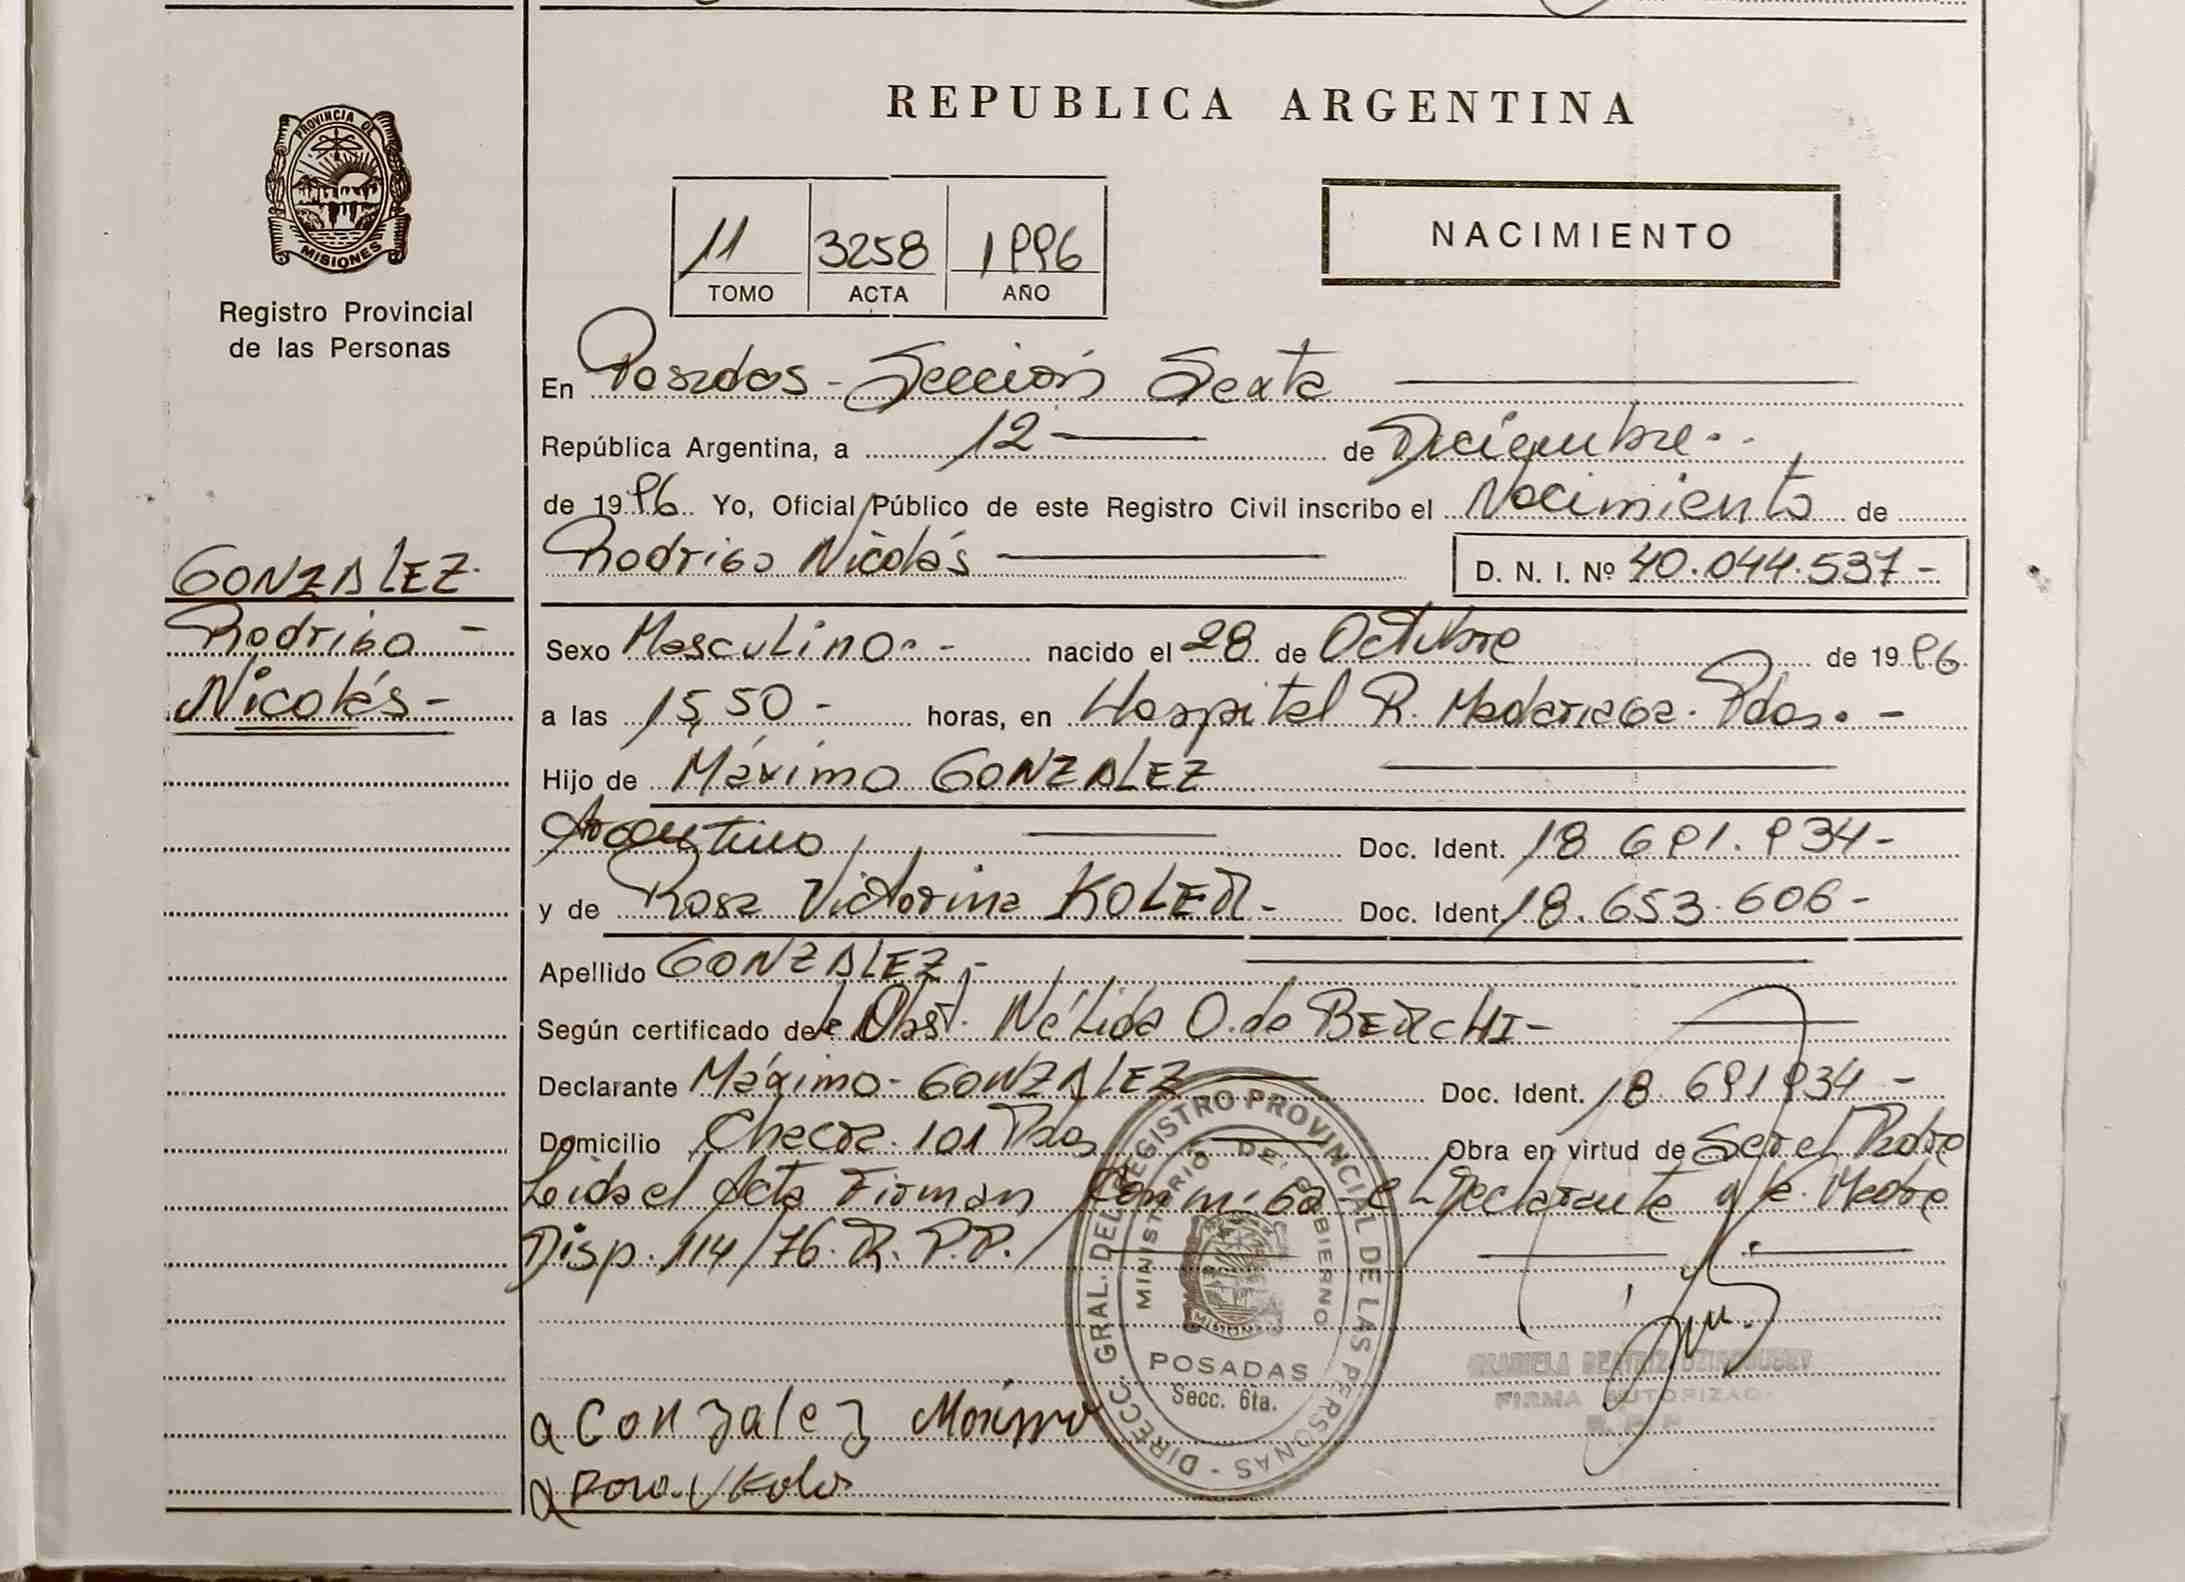 REPUBLICA ARGENTINA
PROVINCIA DE
MISIONES
Registro Provincial
de las Personas
11 3258 1996
TOMO ACTA AÑO
NACIMIENTO
En Posadas - Sección Sexta
República Argentina, a 12 de Diciembre
de 1996 Yo, Oficial Público de este Registro Civil inscribo el Nacimiento de
Rodrigo Nicolás D. N. I. Nº 40.044.537-
GONZALEZ
Rodrigo -
Nicolás -
Sexo Masculino - nacido el 28 de Octubre de 1996
a las 15,50 - horas, en Hospital R. Madariaga. Pdas. -
Hijo de Máximo GONZALEZ
Argentino Doc. Ident. 18 691.934-
y de Rosa Victorina KOLER - Doc. Ident. 18.653.606-
Apellido GONZALEZ -
Según certificado de la Obst. Nélida O. de BERCHI-
Declarante Máximo - GONZALEZ Doc. Ident. 18.691934-
Domicilio Chacra 101 Pdas Obra en virtud de Ser el Padre
Leida el Acta Firman Conmigo el Declarante y la Madre
Disp. 114/76. R. P. P.
DIRECC. GRAL. DEL REGISTRO PROVINCIAL DE LAS PERSONAS -
MINISTERIO DE GOBIERNO
MISIONES
POSADAS
Secc. 6ta.
GRACIELA BEATRIZ
FIRMA AUTORIZADA
Gonzalez Máximo
Rosa V Koler